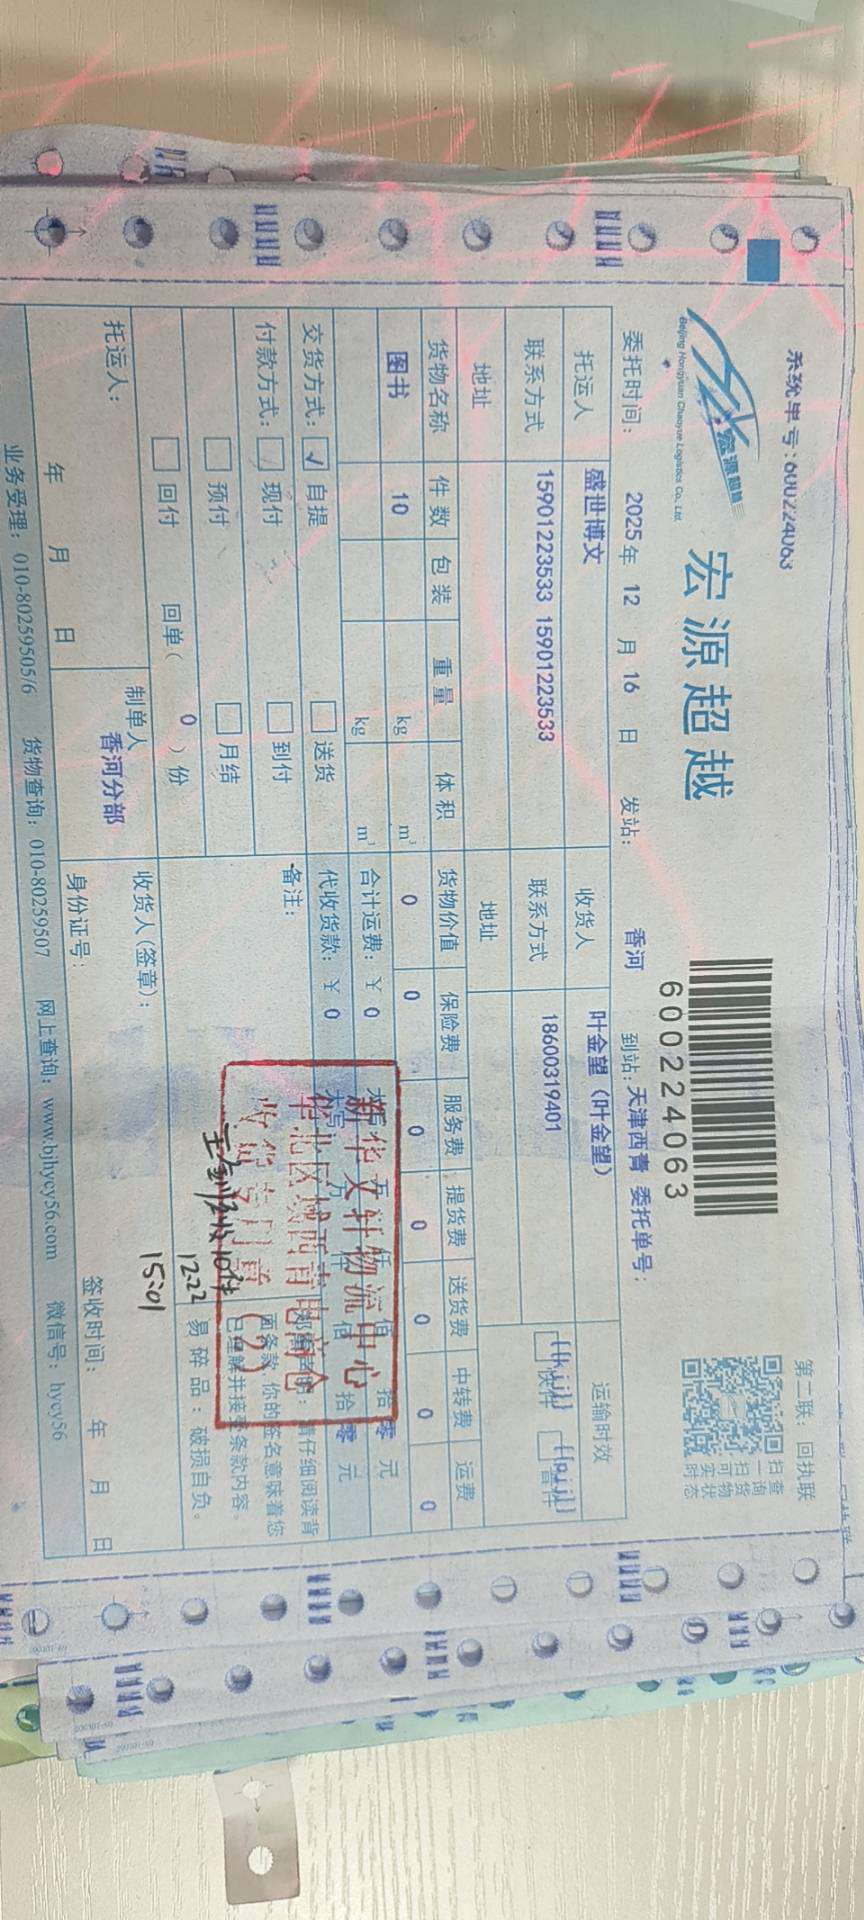 系统单号:600224063
第二联：回执联
宏源超越
Beijing Hongyuan Chaoyue Logistics Co., Ltd.
宏源超越
600224063
扫一扫可实时
查询货物状态
委托时间： 2025 年 12 月 16 日 发站： 香河 到站: 天津西青 委托单号：
托运人 盛世博文 收货人 叶金望（叶金望） 运输时效
联系方式 15901223533 15901223533 联系方式 18600319401
地址 地址
货物名称 件数 包装 重量 体积 货物价值 保险费 服务费 提货费 送货费 中转费 运费
图书 10 kg m³ 0 0 0 0 0 0 0
kg m³ 合计运费：￥ 0 佰 拾 零 元
交货方式： ✓ 自提 送货 代收货款：￥ 0 佰 拾 零 元
付款方式： 现付 到付 备注：
预付 月结
回付 回单（ 0 ）份
新华文轩物流中心
华北区域西青电商仓
收货专用章
请仔细阅读背
面条款，你的签名意味着您
已理解并接受条款内容。
易碎品：破损自负。
10件
12.22
15:01
托运人： 制单人 收货人(签章)：
香河分部
年 月 日 身份证号： 签收时间： 年 月 日
业务受理：010-80259505/6 货物查询：010-80259507 网上查询：www.bjhycy56.com 微信号：hycy56